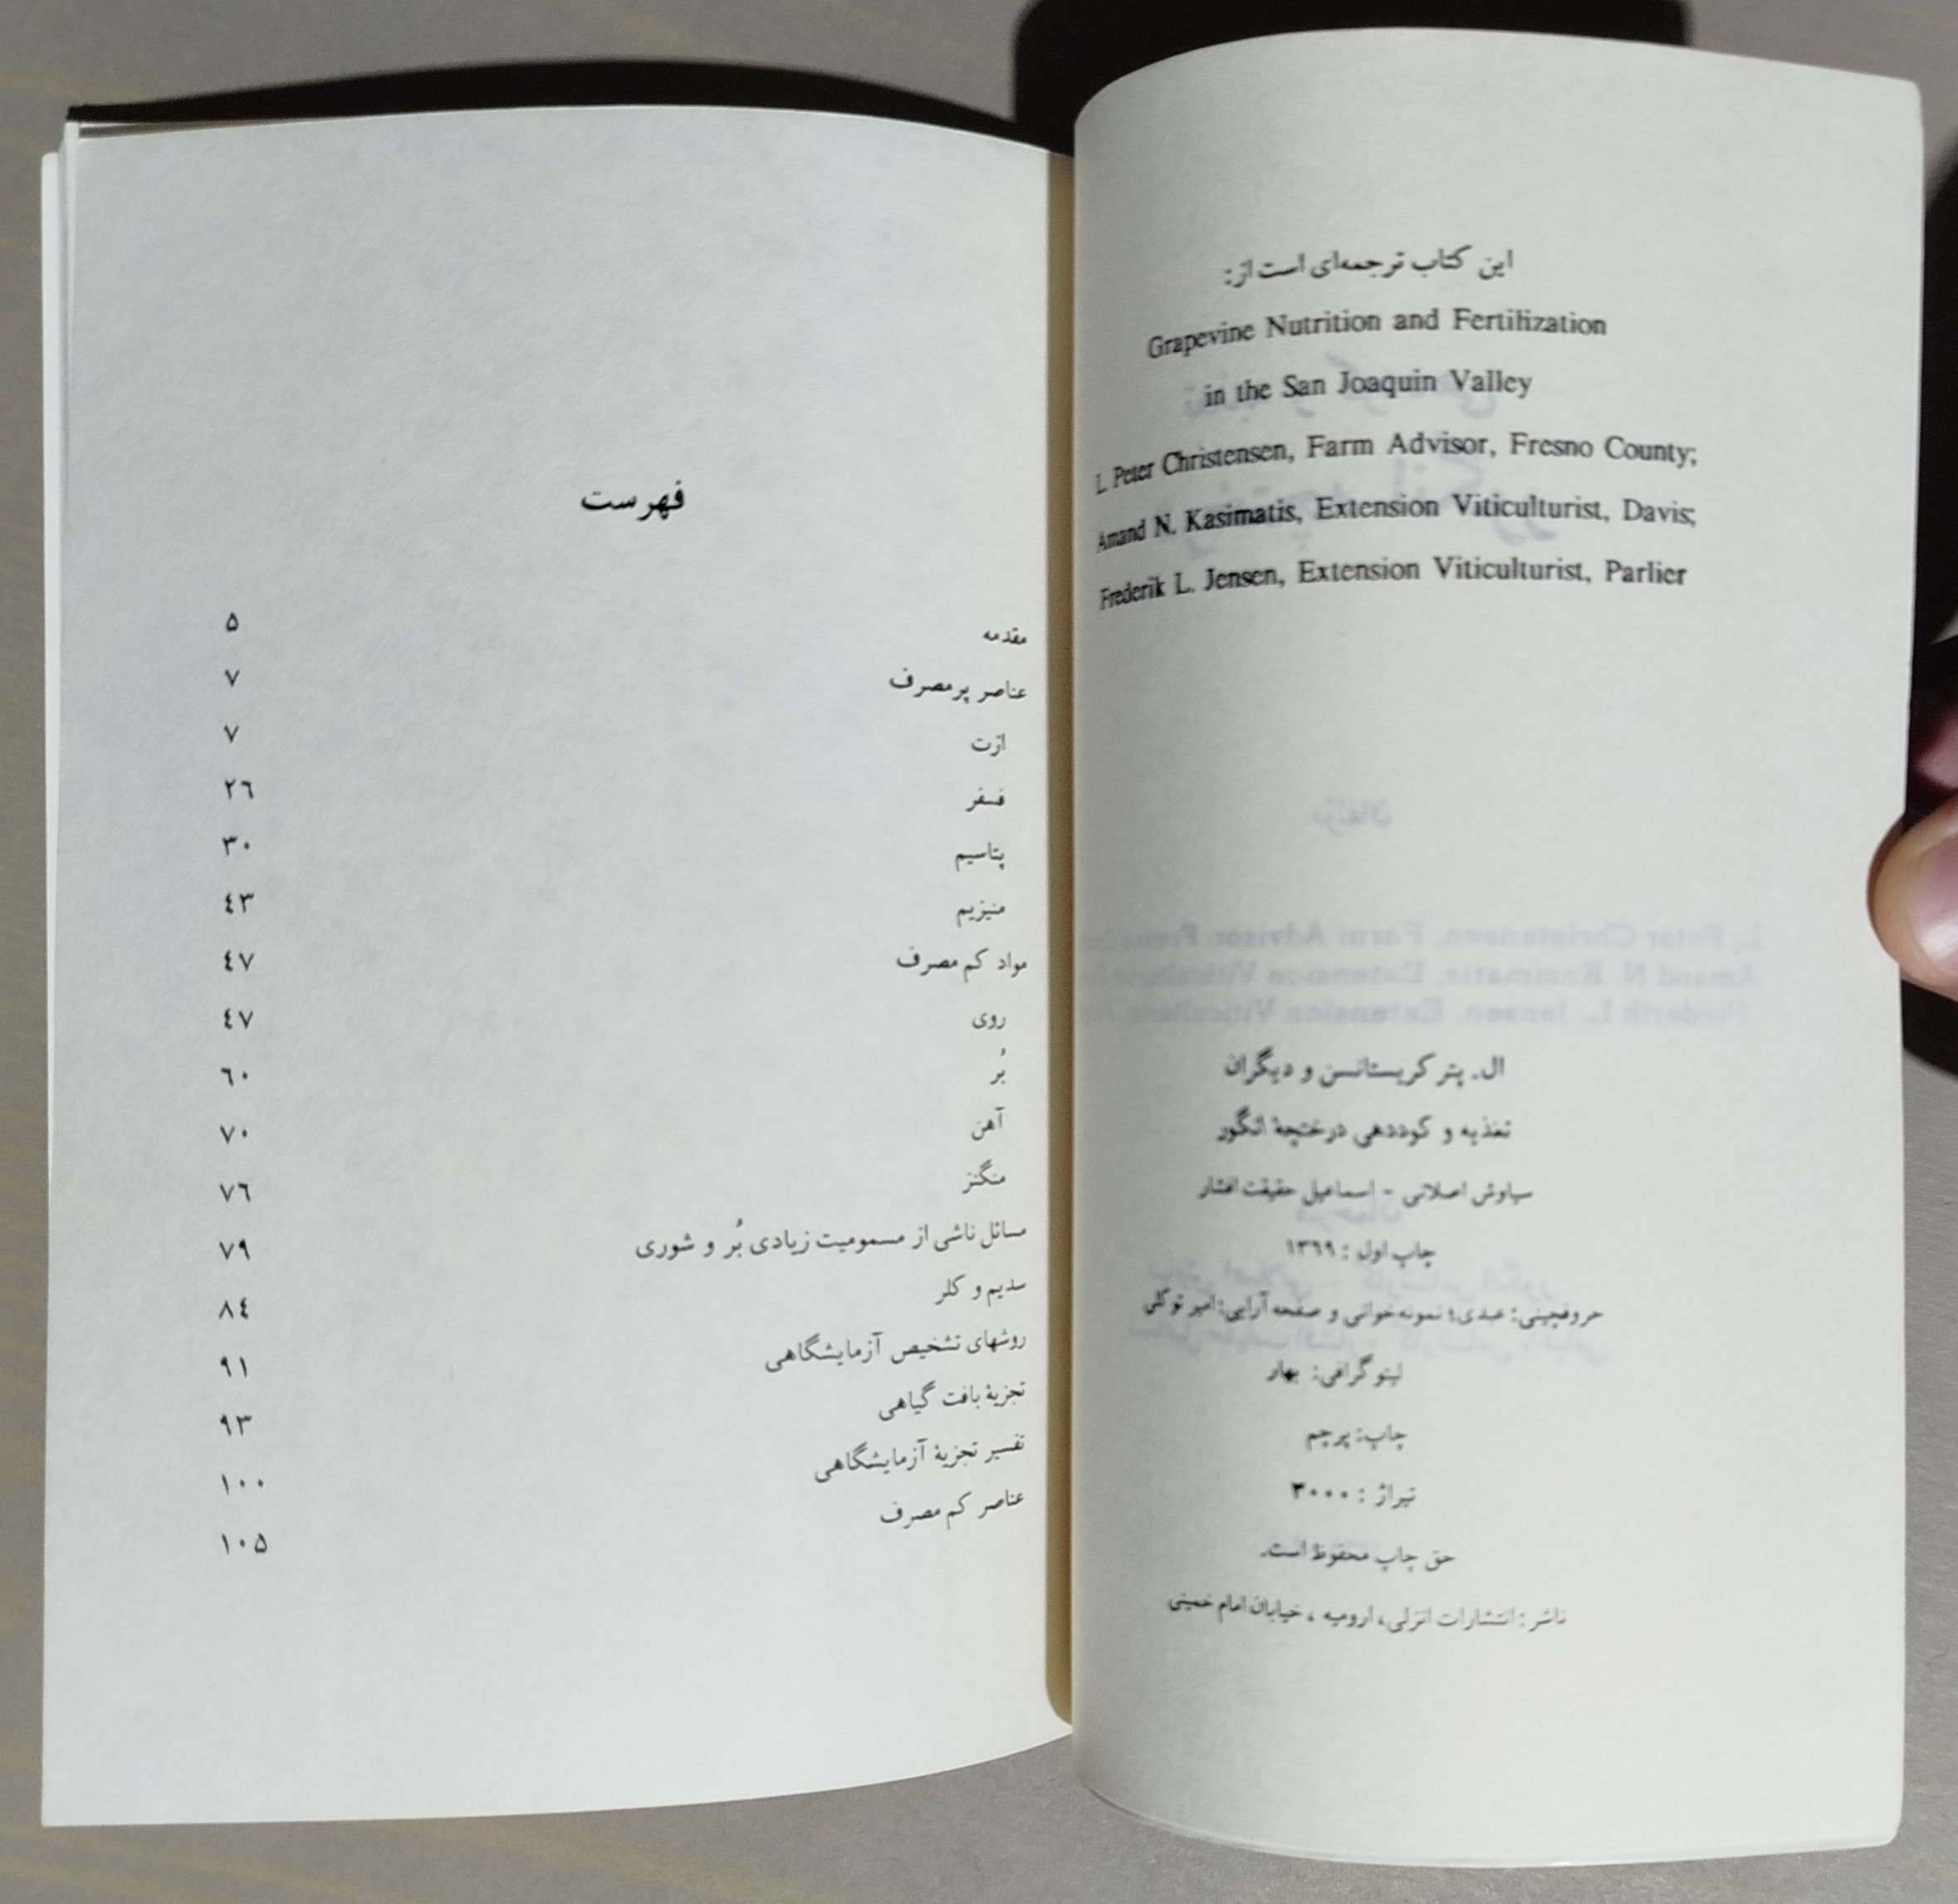 این کتاب ترجمه‌ای است از:
Grapevine Nutrition and Fertilization
in the San Joaquin Valley
L. Peter Christensen, Farm Advisor, Fresno County;
Amand N. Kasimatis, Extension Viticulturist, Davis;
Frederik L. Jensen, Extension Viticulturist, Parlier
ال. پتر کریستانسن و دیگران
تغذیه و کوددهی درختچهٔ انگور
سیاوش اصلانی - اسماعیل حقیقت افشار
چاپ اول : ۱۳٦۹
حروفچینی: عبدی؛ نمونه‌خوانی و صفحه آرایی: امیر توکلی
لیتوگرافی: بهار
چاپ: پرچم
تیراژ : ۳۰۰۰
حق چاپ محفوظ است.
ناشر : انتشارات انزلی، ارومیه ، خیابان امام خمینی
فهرست
مقدمه ۵
عناصر پرمصرف ۷
ازت ۷
فسفر ۲٦
پتاسیم ۳۰
منیزیم ٤۳
مواد کم مصرف ٤۷
روی ٤۷
بُر ٦۰
آهن ۷۰
منگنز ۷٦
مسائل ناشی از مسمومیت زیادی بُر و شوری ۷۹
سدیم و کلر ۸٤
روشهای تشخیص آزمایشگاهی ۹۱
تجزیهٔ بافت گیاهی ۹۳
تفسیر تجزیهٔ آزمایشگاهی ۱۰۰
عناصر کم مصرف ۱۰۵